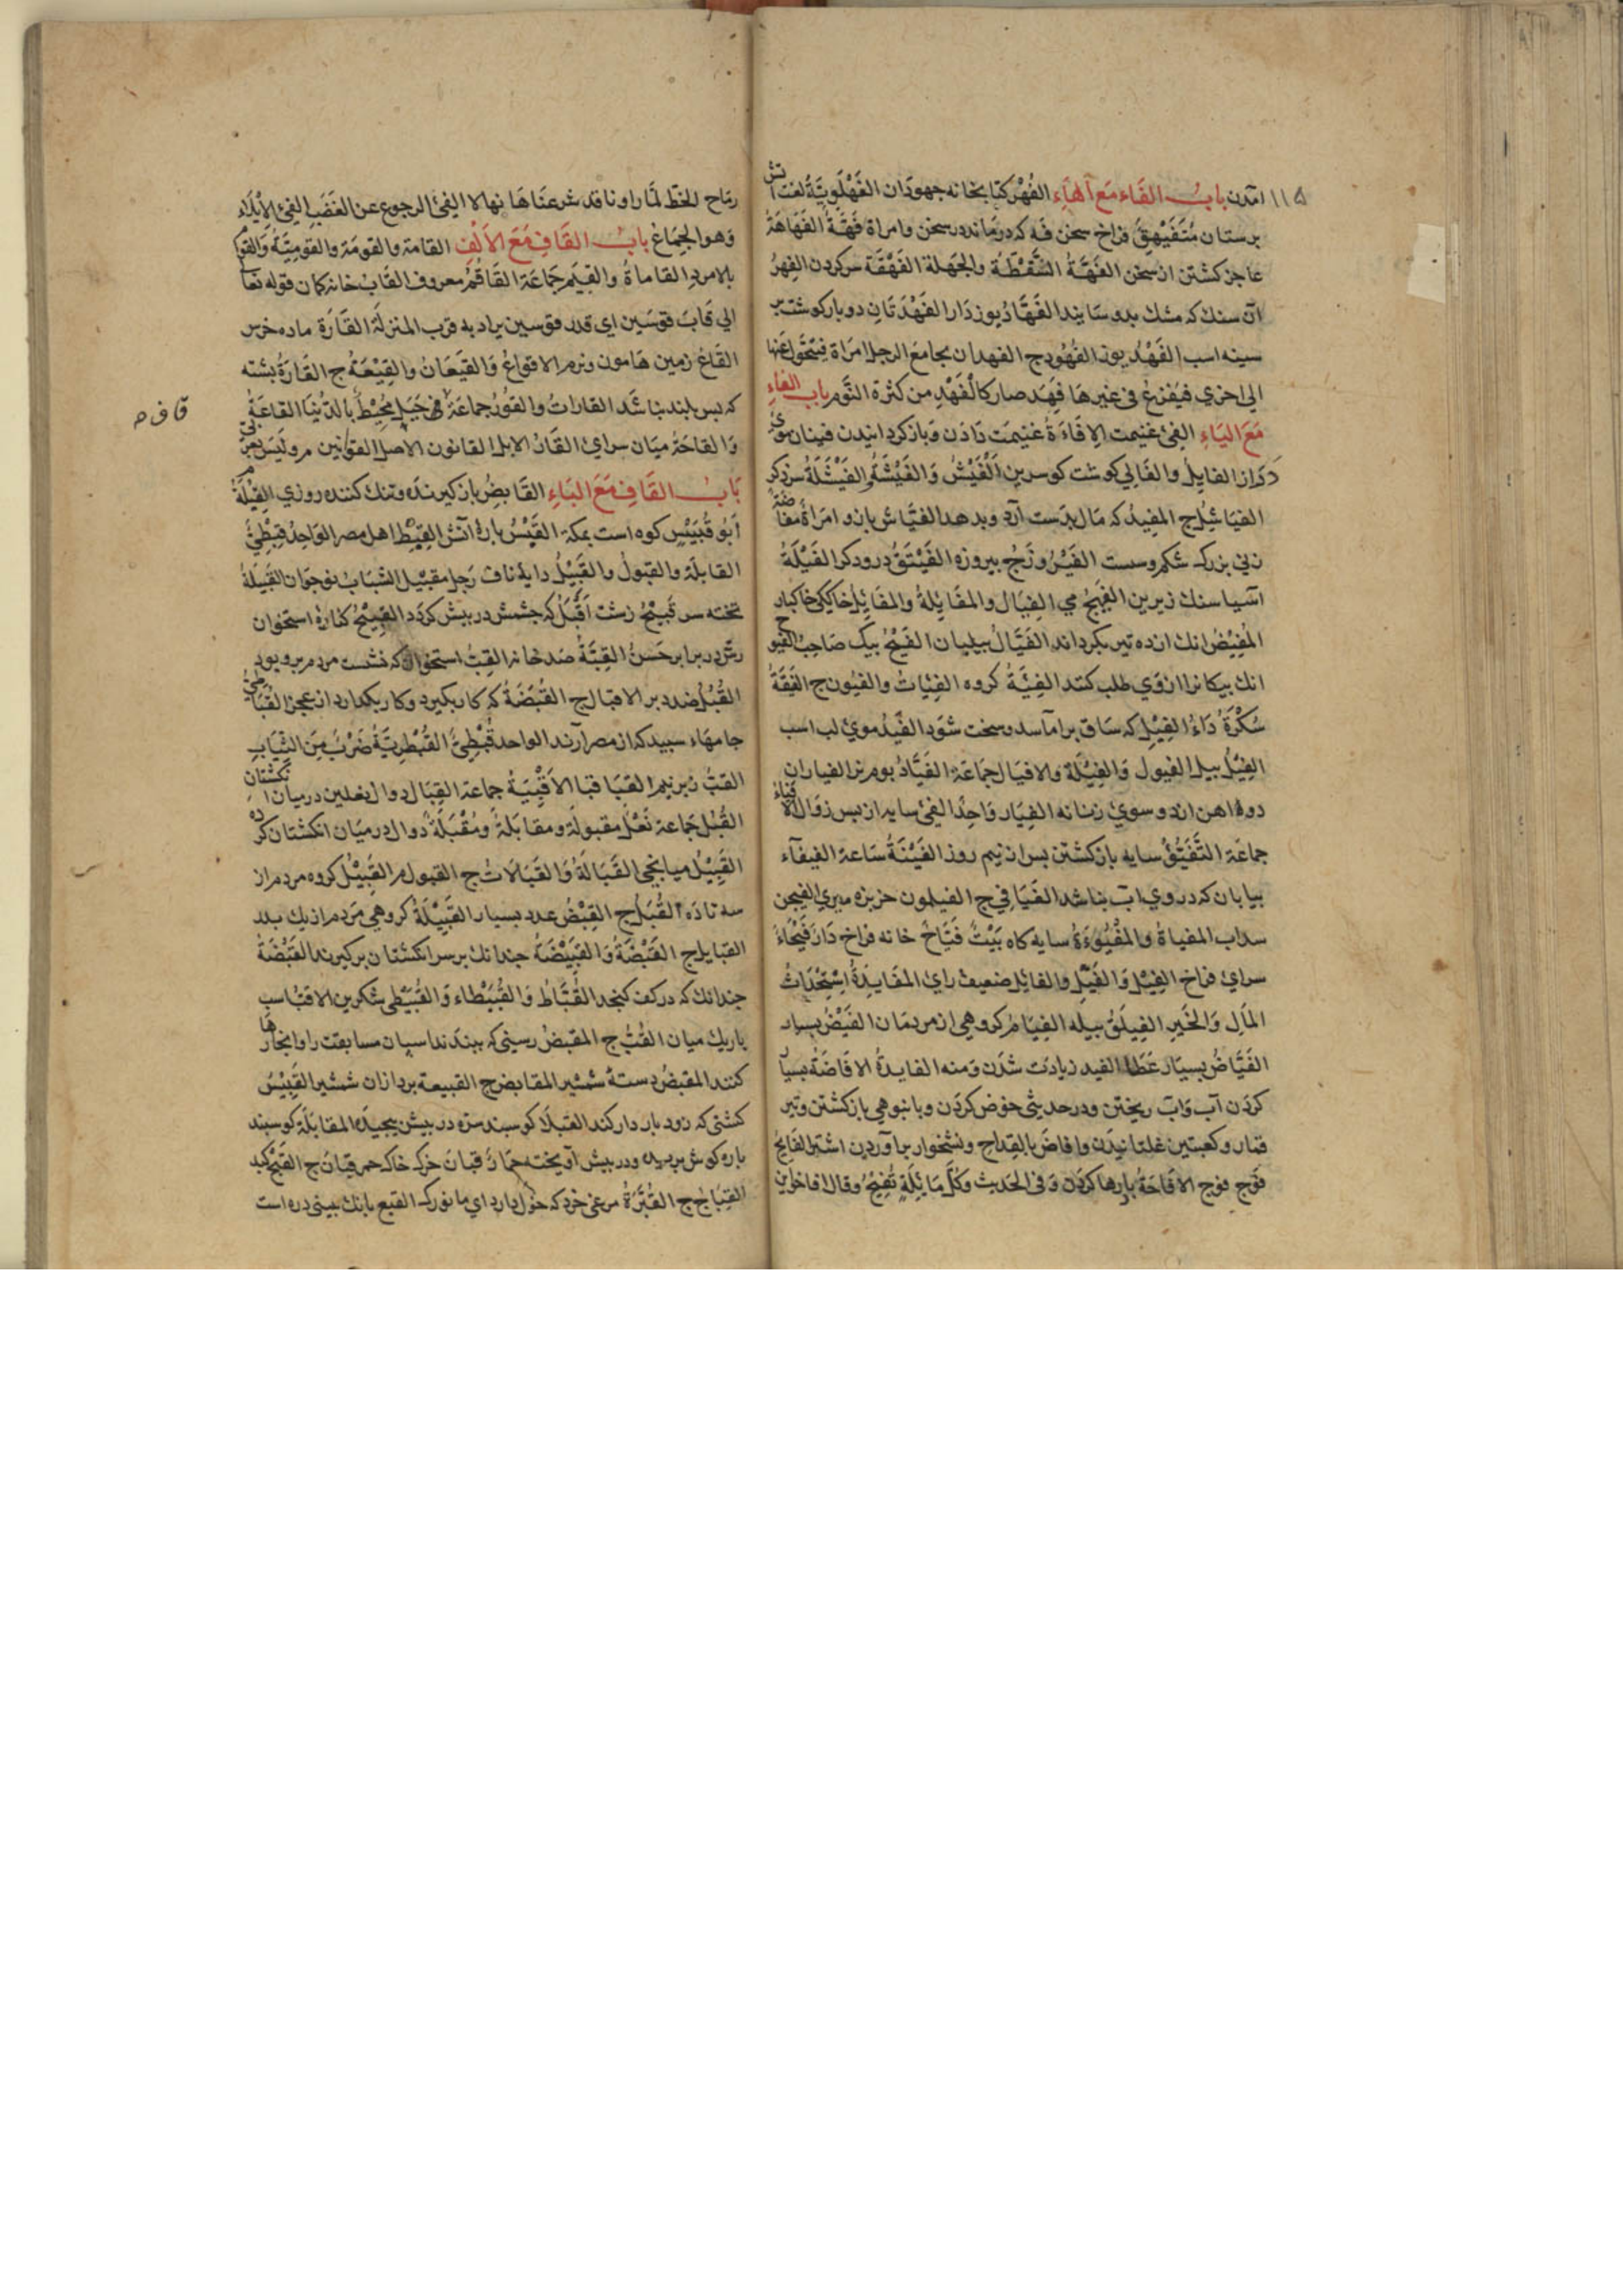 ۱۱۵ آمدن باب الفاء مع الهاء الفُهْر کتابخانه جهودان الفَهْلَوِيّةُ لغت آتش
برستان مُتَفَيْهِقٌ فراخ سخن فَه که درماند در سخن وامراة فَهَّةٌ الفَهَاهَةُ
عاجز کشتن از سخن الفَهَّةُ السَّقْطَة والجَهْلة الفَهْقَة سر کردن الفِهرُ
آن سنك که مشك بدو سایند الفَهَّادُ یوزدار الفَهْدَتَانِ دوبار کوشت بر
سینه اسب الفَهْد یوز الفُهُود ج الفهدان یجامع الرجل امراة فيتحول عنها
الی اخری فيفرغ فی غیرها فَهِدَ صار کالفَهْدِ من کثرة النَّوم باب الفاء
مع الیاء الفیئ غنیمت الاِفَاءَةُ غنیمت دادن وباز کردانیدن فینان موی
دراز الفایل والفالی کوشت کوسرین الفَیْشُ والفَیْشَةُ والفَیْشَلَةُ سر ذکر
الفیاشل ج المفید که مال بدست آرد وبدهد الفیاش بازو امراة مفاضة
زنی بزرك شکم وسست الفیروزج بیروزه الفَیْتَقُ درودکر الفَیْلَةُ
آسیا سنك زیرین الفَیْهَجُ می الفِیَال والمفَایَلةُ والمفَایِل خاکیکی خاکبار
المُفِیْضُ انك ازده تیر بکرداند الفَیَّالُ بیلبان الفَیْجُ بیك صاحب الفیوج
انك بیکانرا ازوی طلب کنند الفِئَةُ کروه الفِئَات والفئون ج الفَیْقَةُ
سُکْرَةُ دَاءُ الفِیْلِ که ساق برآماسد وسخت شود الفَیْدُ موی لب اسب
الفِیْل بیل الفیول والفِیَلة والافیال جماعة الفَیَّادُ بوم نر الفیاران
دوه اهن ازدو سوی زبانه الفیار واحد الفیئ سایه از بس زوال الافیاء
جماعة التَّفَیُّؤُ سایه بازکشتن بس از نیم روز الفَیْنَةُ ساعة الفیفاء
بیابان که دروی آب نباشد الفَیَافِي ج الفیلمون خربزه میری الفیجن
سداب المفیاةُ والمَفْیُوءَةُ سایه کاه بَیْتٌ فَیَّاحٌ خانه فراخ دار فَیْحَاءُ
سرای فراخ الفِیْل والفَیِّل والفائل ضعیف رای المفَایَدةُ اِسْتِحْدَاثُ
المالِ والخَیرِ الفیلَقُ بیله الفِیَام کروهی از مردمان الفَیْضُ بسیار
الفَیَّاضُ بسیار عَطا الفید زیادت شدن ومنه الفایدةُ الافَاضَةُ بسیار
کردن آب وآب ریختن ودر حدیثی خوض کردن وبانبوهی بازکشتن وتیر
قمار وکعبتین غلتانیدن وافاضَ بالقِداحِ ونشخوار برآوردن اشتر الفَایِجُ
فَوج فوج الافَاحَةُ بارها کردن وفی الحدیث وکُلُّ مَائِلَةٍ تُفِیْحُ وقال افاخوا من
رماح للخَطّ لَمَّا راونا قد شرعناها نهالا الفیئ الرجوع عن الغضب الفیئ الایلاء
وهو الجماع باب القاف مع الالف القامة والقومة والقومیّةُ والقوام
بالا مرد القامةُ والقِیَم جماعة القاقُم معروف القاب خانه کمان قوله تعا
الی قاب قوسین ای قدر قوسین یراد به قرب المنزلة القَارَة ماده خرس
القَاعُ زمین هامون ونرم الاقواعُ والقیعان والقِیْعَةُ ج القَارَةُ بشته
که بس بلند نباشد القارات والقور جماعة ق جبل محیط بالدنیا القاعةُ
والقاحة میان سرای القاق الابل القانون الاصل القوانین م ولیس بعربی
باب القاف مع الباء القابض بازکیرنده وتنك کننده روزی القِبْلةُ م
ابو قُبَیْسٍ کوه است بمکة القَبَسُ باره آتش القِبْط اهل مصر الواحد قِبْطِیٌّ
القابلة والقبول والقبیل دایهٔ ناف رجل مقبیل الشباب نوجوان القبیلةُ
تخته سر قَبیح زشت اَقْبَل که جشمش در بیش کردد القبیح کناره استخوان
رش دربرابر حَسَنُ القِبَّةُ صد خانه القِبُّ استخوان که نشست مردم برو بود
القُبُل ضد دبر الاقبال ج القُبَضَةُ که کار بکیرد وکار بکدارد از عجز القَبَاطِيُّ
جامهاء سبید که از مصر آرند الواحد قُبْطِیٌّ القُبْطُرِیَّةُ ضَرْبٌ مِنَ الثِّیَابِ
القبُّ زبر نیم القَبَا قبا الاَقْبِیَةُ جماعة القِبَال دوال نعلین درمیان انکشتان
القُبُل جماعة نَعْلٌ مقبولة ومقابلةٌ ومُقْبَلَةٌ دوال درمیان انکشتان کرده
القَبِیْلُ میانجی القَبَالَةُ والقَبَالات ج القبول م القَبِیْل کروه مردم از
سه تا ده القُبُل ج القِبْضُ عدد بسیار القَبِیْلَةُ کروهی مردم از یك بدر
القبایل ج القَبْضَةُ والقَبِیْضَةُ جندانك برسر انکشتان برکیرند القَبْضَةُ
جندانك که در کف کنجد القُبَّاطُ والقُبَیْطاء والقُبَّیْطی شکرین الاقبُّ اسب
باریك میان القُبُّ ج المقبض رسنی که ببندند اسپان مسابقت را وانجا رها
کنند المقبضُ دستهٔ شمشیر المقابض ج القبیعة بردازان شمشیر القَبِیْسُ
کشنی که زود باردار کند القبلا کوسبند سره در بیش بیجیده المقابلة کوسبند
باره کوش بریده ودر بیش آویخته حِمار قبان خرك خاك حمر قبان ج القَبَجُ کبك
القِبَاج ج القُبَّرَةُ مرغی خرد که خول دارد ای مانورك القبع بانك بینی دره است
قاف ح